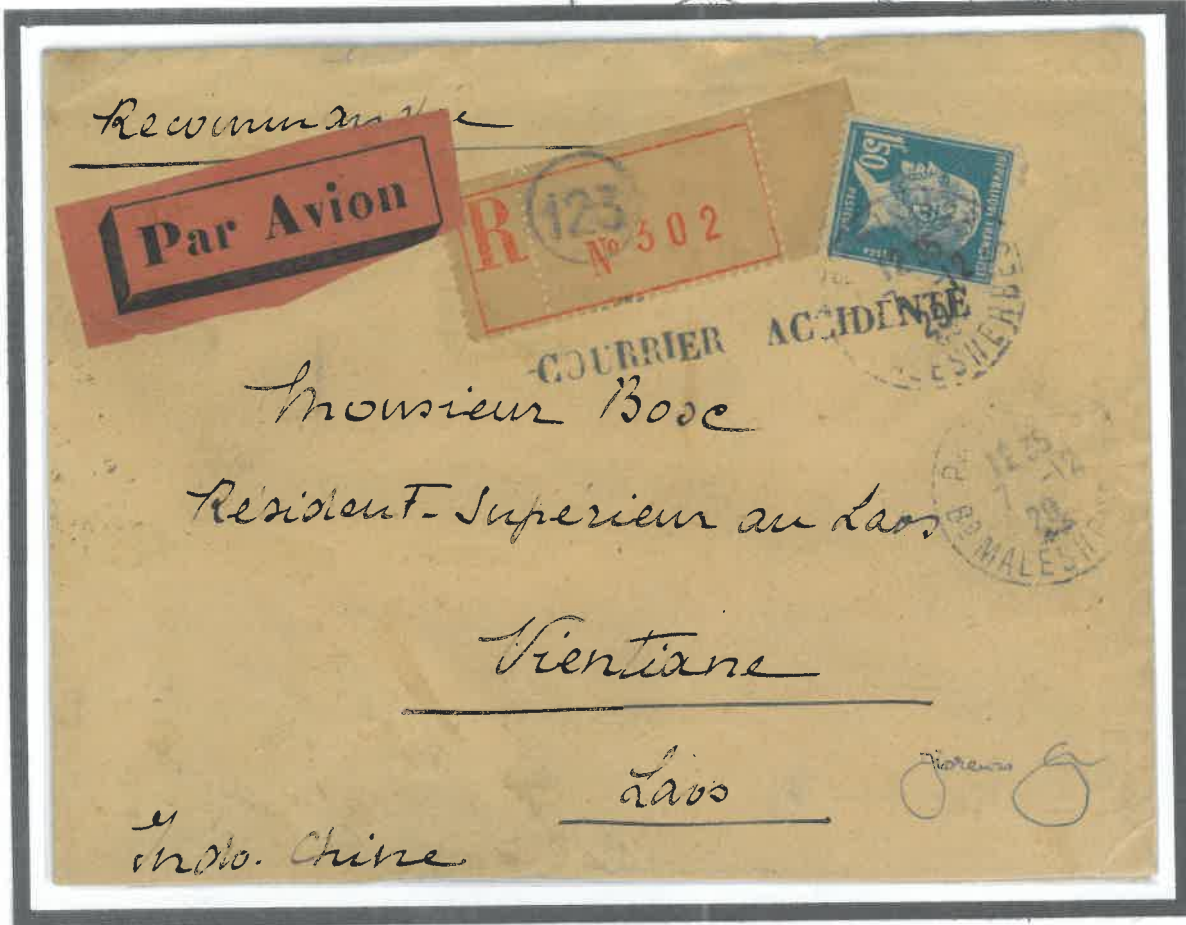 Recommandée
Par Avion
R 123 Nº 302
1F50
POSTES
COURRIER ACCIDENTÉ
12 35
-12
29
MALESHERBES
Monsieur Bosc
Résident-Supérieur au Laos
12 35
7 -12
29
Bd MALESH
Vientiane
Laos
Indo. Chine